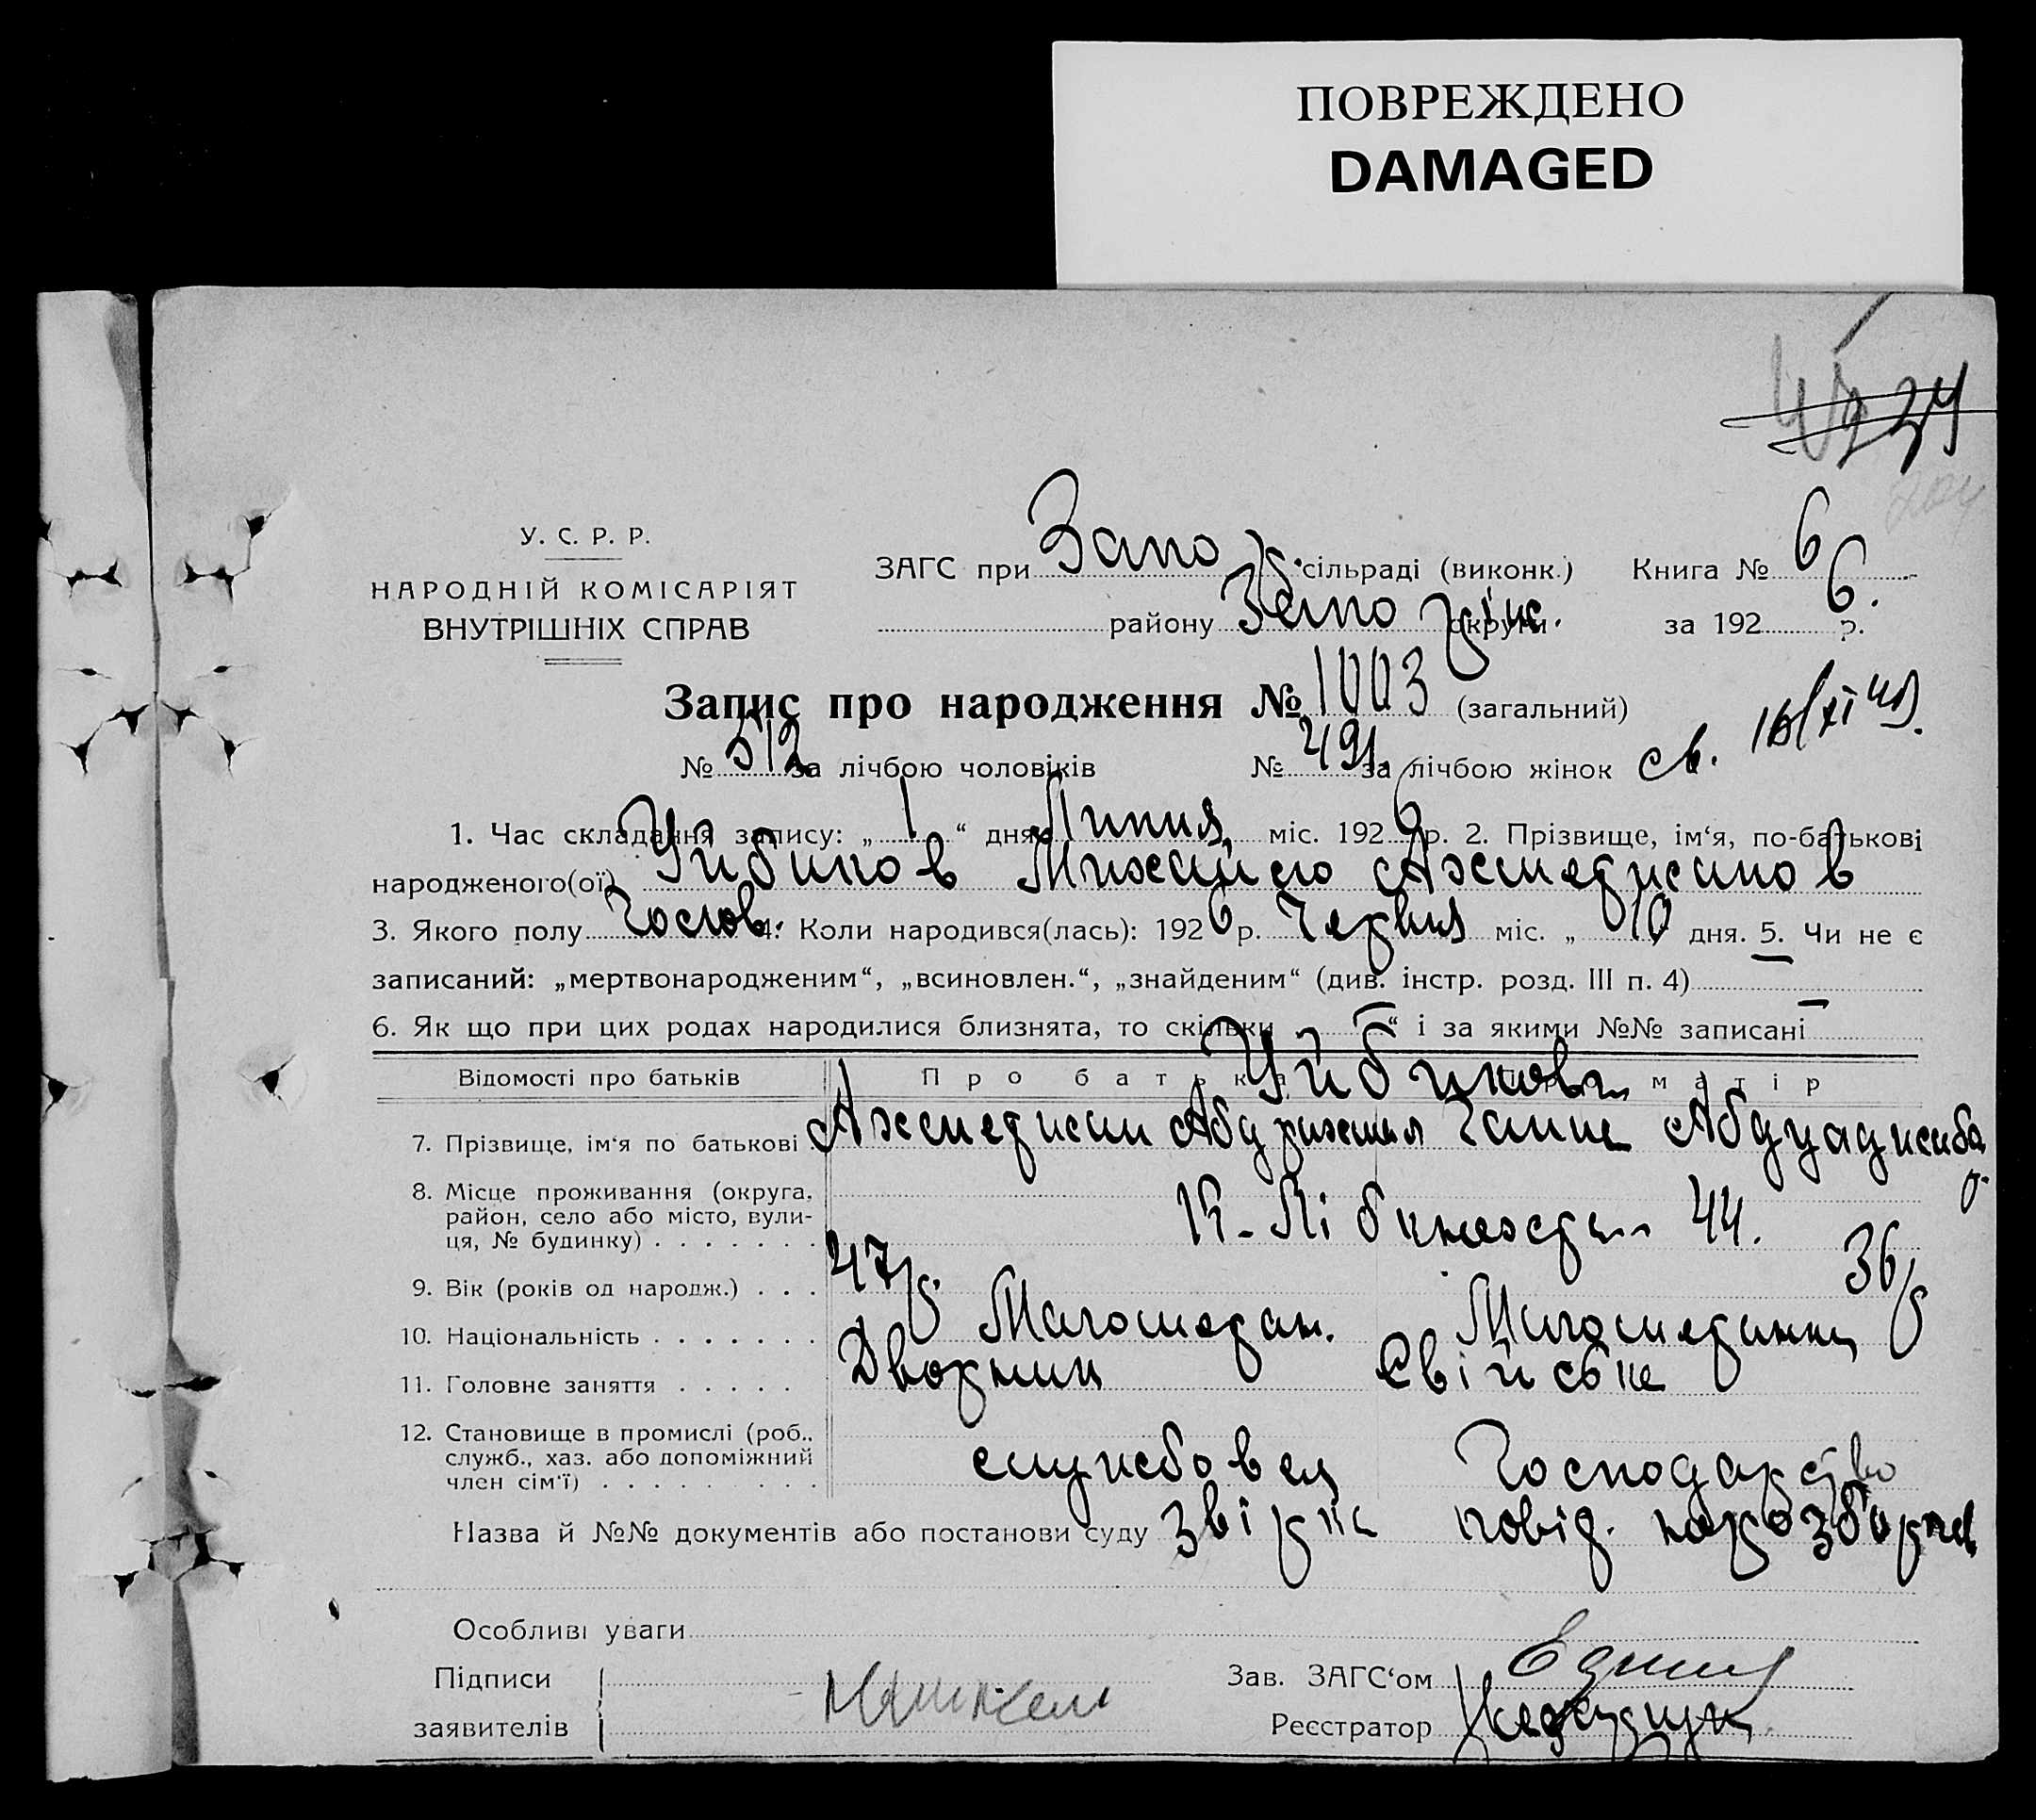 ПОВРЕЖДЕНО
DAMAGED
У. С. Р. Р.
НАРОДНІЙ КОМІСАРІЯТ
ВНУТРІШНІХ СПРАВ
ЗАГС при Запо сільраді (виконк.) Книга № 6
району Запо округи за 1926 р.
Запис про народження № 1003 (загальний)
№ 512 за лічбою чоловіків № 491 за лічбою жінок
1. Час складання запису: „1“ дня Липня міс. 1926 р. 2. Прізвище, ім‘я, по-батькові
народженого(ої) Уйбиков Михайло
3. Якого полу Чолов. 4. Коли народився(лась): 1926 р. Червня міс. „10 дня. 5. Чи не є
записаний: „мертвонародженим“, „всиновлен.“, „знайденим“ (див. інстр. розд. III п. 4) —
6. Як що при цих родах народилися близнята, то скільки —“ і за якими №№ записані —
Відомості про батьків Про батька матір
Уйбикови
7. Прізвище, ім‘я по батькові
8. Місце проживання (округа,
район, село або місто, вули-
ця, № будинку) К. Лібкнехта 44.
9. Вік (років од народж.) 47 р. 36 р
10. Національність Магомедан. Магомеданка
11. Головне заняття Дворник Свійське
12. Становище в промислі (роб.,
служб., хаз. або допоміжний
член сім‘ї) службовец Господарство
Назва й №№ документів або постанови суду Звірка повід.
Особливі уваги
Підписи
заявителів
Зав. ЗАГС‘ом
Реєстратор